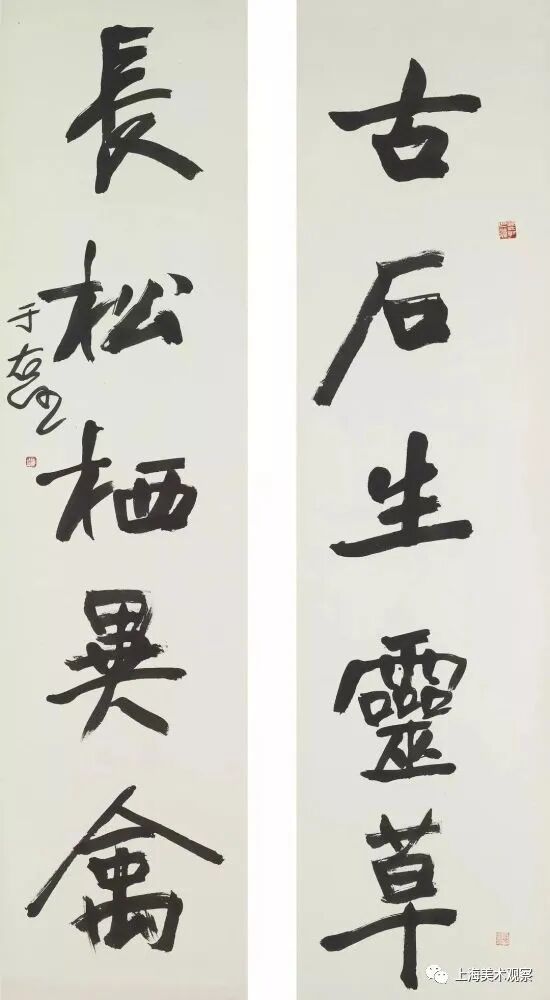 古石生靈草
長松栖異禽
于
上海美术观察